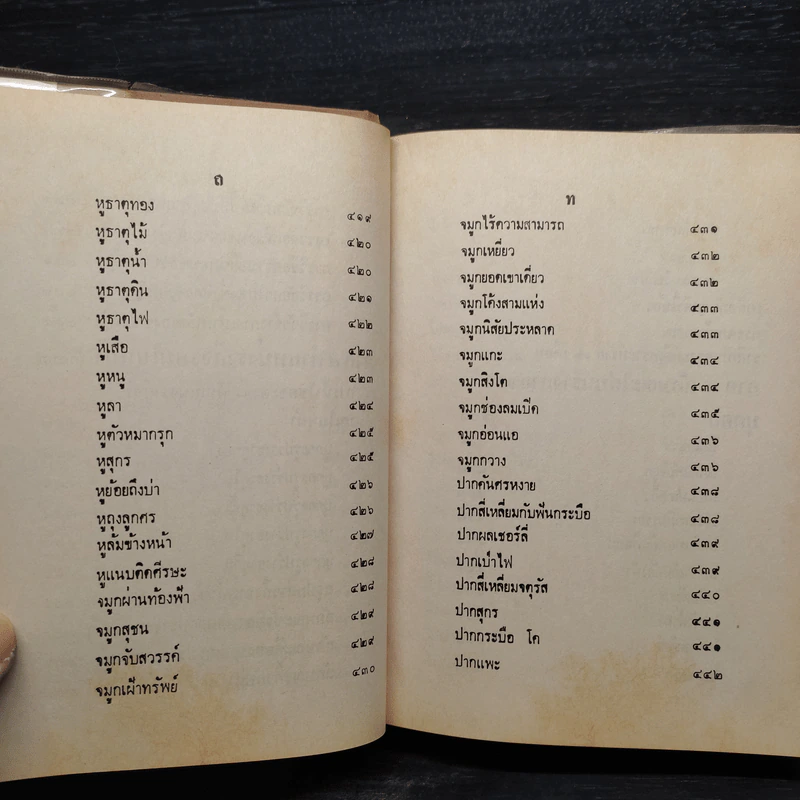 ถ
หูธาตุทอง ๔๑๙
หูธาตุไม้ ๔๒๐
หูธาตุน้ำ ๔๒๐
หูธาตุดิน ๔๒๑
หูธาตุไฟ ๔๒๒
หูเสือ ๔๒๓
หูหนู ๔๒๓
หูลา ๔๒๔
หูตัวหมากรุก ๔๒๕
หูสุกร ๔๒๕
หูย้อยถึงบ่า ๔๒๖
หูถุงลูกศร ๔๒๖
หูล้มข้างหน้า ๔๒๗
หูแนบติดศีรษะ ๔๒๘
จมูกผ่านท้องฟ้า ๔๒๘
จมูกสุชน ๔๒๙
จมูกจับสวรรค์ ๔๒๙
จมูกเฝ้าทรัพย์ ๔๓๐
ท
จมูกไร้ความสามารถ ๔๓๑
จมูกเหยี่ยว ๔๓๒
จมูกยอดเขาเดี่ยว ๔๓๒
จมูกโค้งสามแห่ง ๔๓๓
จมูกนิสัยประหลาด ๔๓๓
จมูกแกะ ๔๓๔
จมูกสิงโต ๔๓๔
จมูกช่องลมเปิด ๔๓๕
จมูกอ่อนแอ ๔๓๖
จมูกกวาง ๔๓๖
ปากคันศรหงาย ๔๓๘
ปากสี่เหลี่ยมกับฟันกระบือ ๔๓๘
ปากผลเชอร์ลี่ ๔๓๙
ปากเป่าไฟ ๔๓๙
ปากสี่เหลี่ยมจตุรัส ๔๔๐
ปากสุกร ๔๔๑
ปากกระบือ โค ๔๔๑
ปากแพะ ๔๔๒